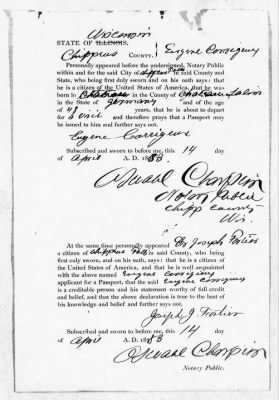 Wisconsin
STATE OF ILLINOIS,
Chippewa COUNTY. Eugene
Personally appeared before the undersigned, Notary Public
within and for the said City of Chippewa Falls in said County and
State, who being first duly sworn and on his oath says: that he
is a citizen of the United States of America, that he was
born in in the County of
in the State of Germany and of the age
of 48 years, that he is about to depart
for a visit and therefore prays that a Passport may
be issued to him and further says not.
Eugene
Subscribed and sworn to before me, this 14 day
of April A. D. 1883
Notary Public
Chipp County
Wis.
At the same time personally appeared Dr Joseph
a citizen of Chippewa Falls in said County, who being
first duly sworn, and on his oath, says: that he is a citizen of
the United States of America, and that he is well acquainted
with the above named Eugene
applicant for a Passport, that the said Eugene
is a creditable person and his statement worthy of full credit
and belief, and that the above declaration is true to the best of
his knowledge and belief and further says not.
Joseph
Subscribed and sworn to before me, this 14 day
of April A. D. 1883
Notary Public.